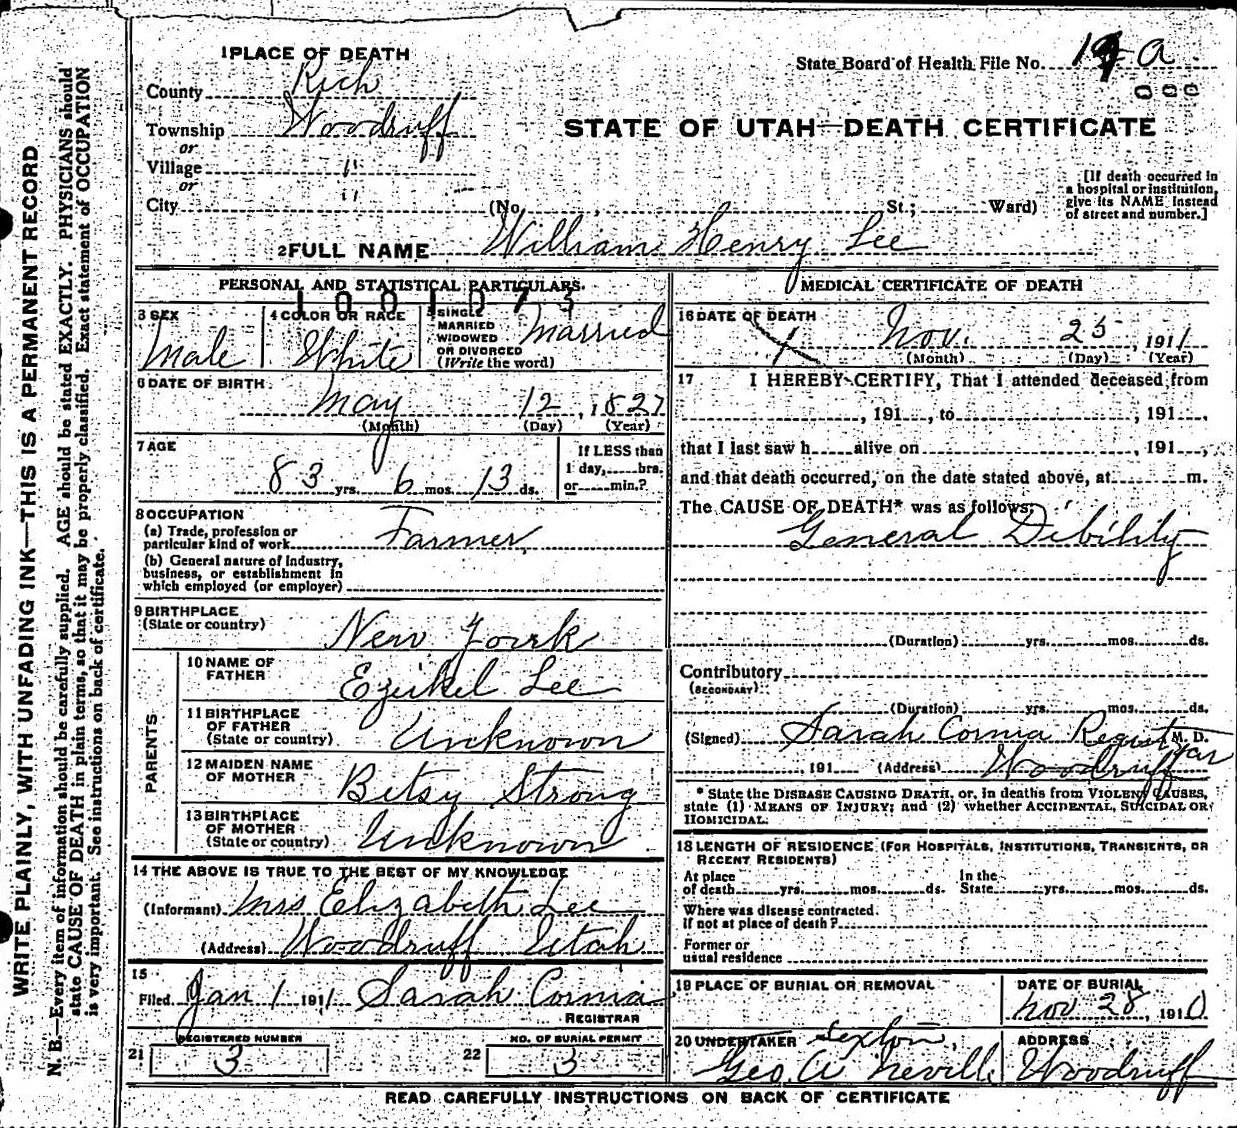 1 PLACE OF DEATH
State Board of Health File No. a
000
County Rich
Township Woodruff
or
Village "
or
City " (No. St.; Ward)
STATE OF UTAH—DEATH CERTIFICATE
[If death occurred in
a hospital or institution,
give its NAME instead
of street and number.]
2 FULL NAME William Henry Lee
PERSONAL AND STATISTICAL PARTICULARS.
3 SEX
Male
4 COLOR OR RACE
White
5 SINGLE
MARRIED
WIDOWED
OR DIVORCED
(Write the word)
Married
6 DATE OF BIRTH
May 12, 1827
(Month) (Day) (Year)
7 AGE
83 yrs. 6 mos. 13 ds.
If LESS than
1 day, hrs.
or min.?
8 OCCUPATION
(a) Trade, profession or
particular kind of work Farmer
(b) General nature of industry,
business, or establishment in
which employed (or employer)
9 BIRTHPLACE
(State or country)
New Yourk
PARENTS
10 NAME OF
FATHER
Ezeikel Lee
11 BIRTHPLACE
OF FATHER
(State or country) Unknown
12 MAIDEN NAME
OF MOTHER
Betsy Strong
13 BIRTHPLACE
OF MOTHER
(State or country) Unknown
14 THE ABOVE IS TRUE TO THE BEST OF MY KNOWLEDGE
(Informant) Mrs Elizabeth Lee
(Address) Woodruff Utah
15
Filed Jan 1 1911 Sarah Cornia
REGISTRAR
REGISTERED NUMBER
21 3
NO. OF BURIAL PERMIT
22 3
MEDICAL CERTIFICATE OF DEATH
16 DATE OF DEATH
Nov. 25, 1911
(Month) (Day) (Year)
17 I HEREBY CERTIFY, That I attended deceased from
, 191 , to , 191 ,
that I last saw h alive on , 191 ,
and that death occurred, on the date stated above, at m.
The CAUSE OF DEATH* was as follows:
General Dibility
(Duration) yrs. mos. ds.
Contributory
(SECONDARY)
(Duration) yrs. mos. ds.
(Signed) Sarah Cornia Registrar M. D.
, 191 (Address) Woodruff
* State the DISEASE CAUSING DEATH, or, in deaths from VIOLENT CAUSES,
state (1) MEANS OF INJURY; and (2) whether ACCIDENTAL, SUICIDAL OR
HOMICIDAL.
18 LENGTH OF RESIDENCE (FOR HOSPITALS, INSTITUTIONS, TRANSIENTS, OR
RECENT RESIDENTS)
At place
of death yrs. mos. ds.
In the
State yrs. mos. ds.
Where was disease contracted.
If not at place of death?
Former or
usual residence
19 PLACE OF BURIAL OR REMOVAL
DATE OF BURIAL
Nov 28, 1910
20 UNDERTAKER Sexton.
Geo. A Neville
ADDRESS
Woodruff
READ CAREFULLY INSTRUCTIONS ON BACK OF CERTIFICATE
WRITE PLAINLY, WITH UNFADING INK—THIS IS A PERMANENT RECORD
N. B.—Every item of information should be carefully supplied. AGE should be stated EXACTLY. PHYSICIANS should
state CAUSE OF DEATH in plain terms, so that it may be properly classified. Exact statement of OCCUPATION
is very important. See instructions on back of certificate.